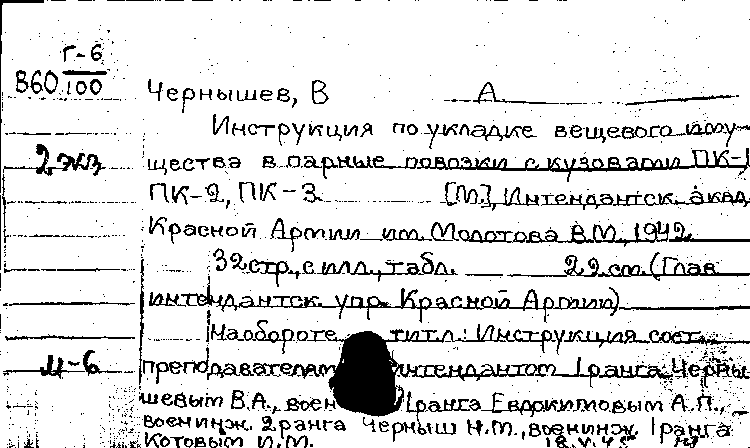 Г-6
В60 100
Чернышев, В А
Инструкция по укладке вещевого иму-
2 экз
щества в парные повозки с кузовами ПК-1
ПК-2, ПК-3 [М], Интендантск. акад
Красной Армии им. Молотова В.М., 1942
32 стр., с илл., табл. 22 см. (Глав
интендантск. упр. Красной Армии)
На обороте титл.: Инструкция сост.
И-6
преподавателям интендантом 1 ранга Черны
шевым В.А., воен 1 ранга Евдокимовым А.П.,
военинж. 2 ранга Черныш Н.М., военинж. 1 ранга
Котовым И.М.